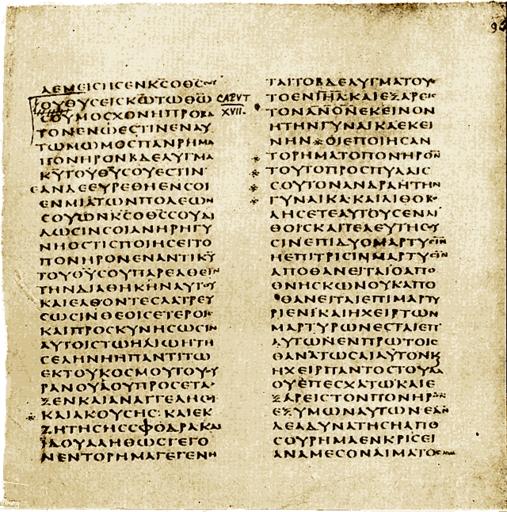 ΑΕΜΕΙCΗCΕΝΚ̅C̅ΟΘ̅C̅
ΟΥΘΥCΕΙCΚ̅Ω̅ΤΩΘ̅Ω̅
CAPVT XVII.
CΟΥΜΟCΧΟΝΗΠΡΟΒΑ
ΤΟΝΕΝΩΕCΤΙΝΕΝΑΥ
ΤΩΜΩΜΟCΠΑΝΡΗΜΑ
ΠΟΝΗΡΟΝΒΔΕΛΥΓΜΑ
Κ̅Υ̅ΤΟΥΘ̅Υ̅CΟΥΕCΤΙΝ
ΕΑΝΔΕΕΥΡΕΘΗΕΝCΟΙ
ΕΝΜΙΑΤΩΝΠΟΛΕΩΝ
CΟΥΩΝΚ̅C̅ΟΘ̅C̅CΟΥΔΙ
ΔΩCΙΝCΟΙΑΝΗΡΗΓΥ
ΝΗΟCΤΙCΠΟΙΗCΕΙΤΟ
ΠΟΝΗΡΟΝΕΝΑΝΤΙΚ̅Υ̅
ΤΟΥΘ̅Υ̅CΟΥΠΑΡΕΛΘΕΙ
ΤΗΝΔΙΑΘΗΚΗΝΑΥΤΟΥ
ΚΑΙΕΛΘΟΝΤΕCΛΑΤΡΕΥ
CΩCΙΝΘΕΟΙCΕΤΕΡΟΙ
ΚΑΙΠΡΟCΚΥΝΗCΩCΙΝ
ΑΥΤΟΙCΤΩΗΛΙΩΗΤΗ
CΕΛΗΝΗΗΠΑΝΤΙΤΩ
ΕΚΤΟΥΚΟCΜΟΥΤΟΥΟΥ
ΡΑΝΟΥΑΟΥΠΡΟCΕΤΑ
ΞΕΝΚΑΙΑΝΑΓΓΕΛΗCΟΙ
※ ΚΑΙΑΚΟΥCΗC: ΚΑΙΕΚ
ΖΗΤΗCΗCCΦΟΔΡΑΚΑΙ
ΙΔΟΥΑΛΗΘΩCΓΕΓΟ
ΝΕΝΤΟΡΗΜΑΓΕΓΕΝΗ
ΤΑΙΤΟΒΔΕΛΥΓΜΑΤΟΥ
ΤΟΕΝΙ̅Η̅Λ̅ΚΑΙΕΞΑΡΕΙC
ΤΟΝΑ̅Ν̅Ο̅Ν̅ΕΚΕΙΝΟΝ
ΗΤΗΝΓΥΝΑΙΚΑΕΚΕΙ
ΝΗΝ ※ ΟΙΕΠΟΙΗCΑΝ
※ ΤΟΡΗΜΑΤΟΠΟΝΗΡΟΝ
※ ΤΟΥΤΟΠΡΟCΠΥΛΑΙC
※ CΟΥΤΟΝΑΝΔΡΑΗΤΗΝ
※ ΓΥΝΑΙΚΑ: ΚΑΙΛΙΘΟΒΟ
ΛΗCΕΤΕΑΥΤΟΥCΕΝΛΙ
ΘΟΙCΚΑΙΤΕΛΕΥΤΗCΟΥ
CΙΝΕΠΙΔΥΟΜΑΡΤΥCΙΝ
ΗΕΠΙΤΡΙCΙΝΜΑΡΤΥCΙΝ
ΑΠΟΘΑΝΕΙΤΑΙΟΑΠΟ
ΘΝΗCΚΩΝΟΥΚΑΠΟ
ΘΑΝΕΙΤΑΙΕΠΙΜΑΡΤΥ
ΡΙΕΝΙΚΑΙΗΧΕΙΡΤΩΝ
ΜΑΡΤΥΡΩΝΕCΤΑΙΕΠ
ΑΥΤΩΝΕΝΠΡΩΤΟΙC
ΘΑΝΑΤΩCΑΙΑΥΤΟΝΚΑΙ
ΗΧΕΙΡΠΑΝΤΟCΤΟΥΛΑ
ΟΥΕΠΕCΧΑΤΩΚΑΙΕ
ΞΑΡΕΙCΤΟΝΠΟΝΗΡΟΝ
ΕΞΥΜΩΝΑΥΤΩΝΕΑΝ
ΔΕΑΔΥΝΑΤΗCΗΑΠΟ
CΟΥΡΗΜΑΕΝΚΡΙCΕΙ
ΑΝΑΜΕCΟΝΑΙΜΑΤΟC